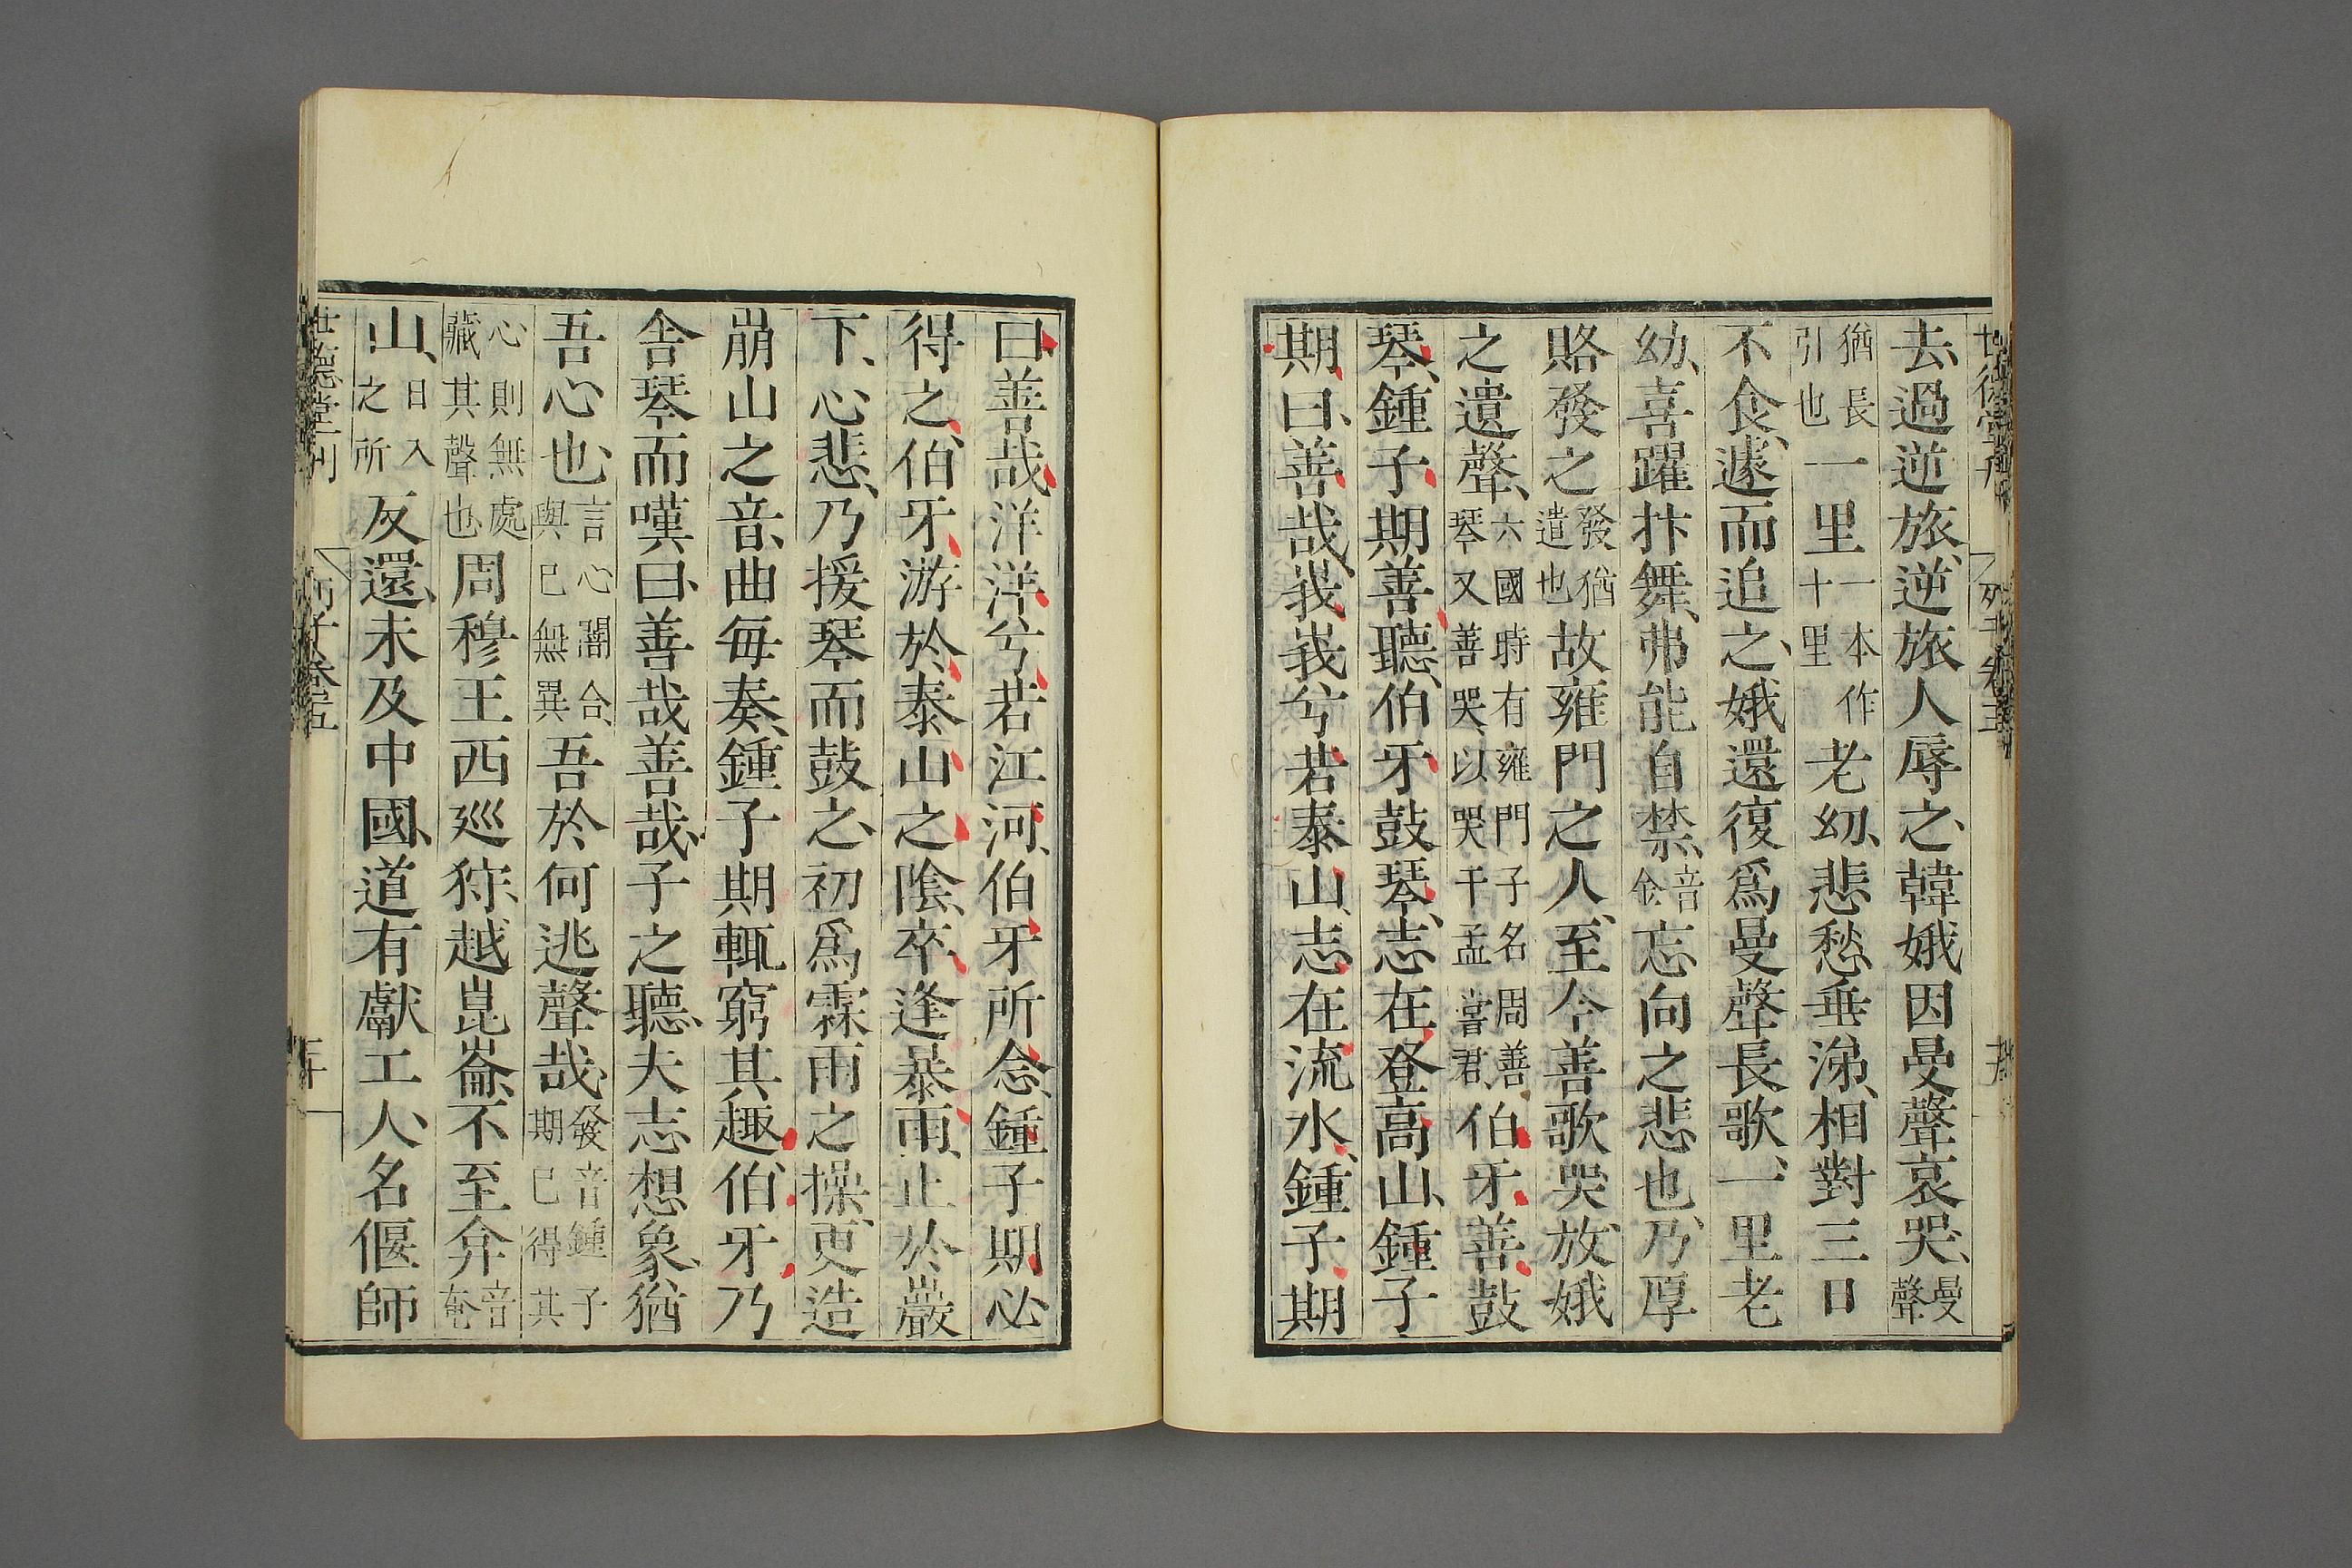 去、過逆旅、逆旅人辱之、韓娥因曼聲哀哭、曼聲
猶長引也一里一本作十里老幼、悲愁、垂涕、相對三日
不食、遽而追之、娥還復爲曼聲長歌、一里老
幼、喜躍抃舞、弗能自禁、音金忘向之悲也、乃厚
賂發之發猶遣也故雍門之人、至今善歌哭、放娥
之遺聲、六國時有雍門子名周善琴又善哭以哭干孟嘗君、伯牙善鼓
琴、鍾子期善聽、伯牙鼓琴、志在登高山、鍾子
期、曰、善哉、峩峩兮若泰山、志在流水、鍾子期
曰善哉洋洋兮若江河、伯牙所念、鍾子期必
得之、伯牙游於泰山之陰、卒逢暴雨、止於巖
下、心悲、乃援琴而鼓之、初爲霖雨之操、更造
崩山之音、曲每奏、鍾子期輒窮其趣、伯牙乃
舍琴而嘆曰、善哉善哉、子之聽、夫志想象、猶
吾心也、言心闇合、與已無異吾於何逃聲哉、發音鍾子期已得其
心則無處藏其聲也周穆王西巡狩、越崑崙、不至弇音奄
山、日入之所反還、未及中國、道有獻工人、名偃師
世德堂刊 列子卷五 二十